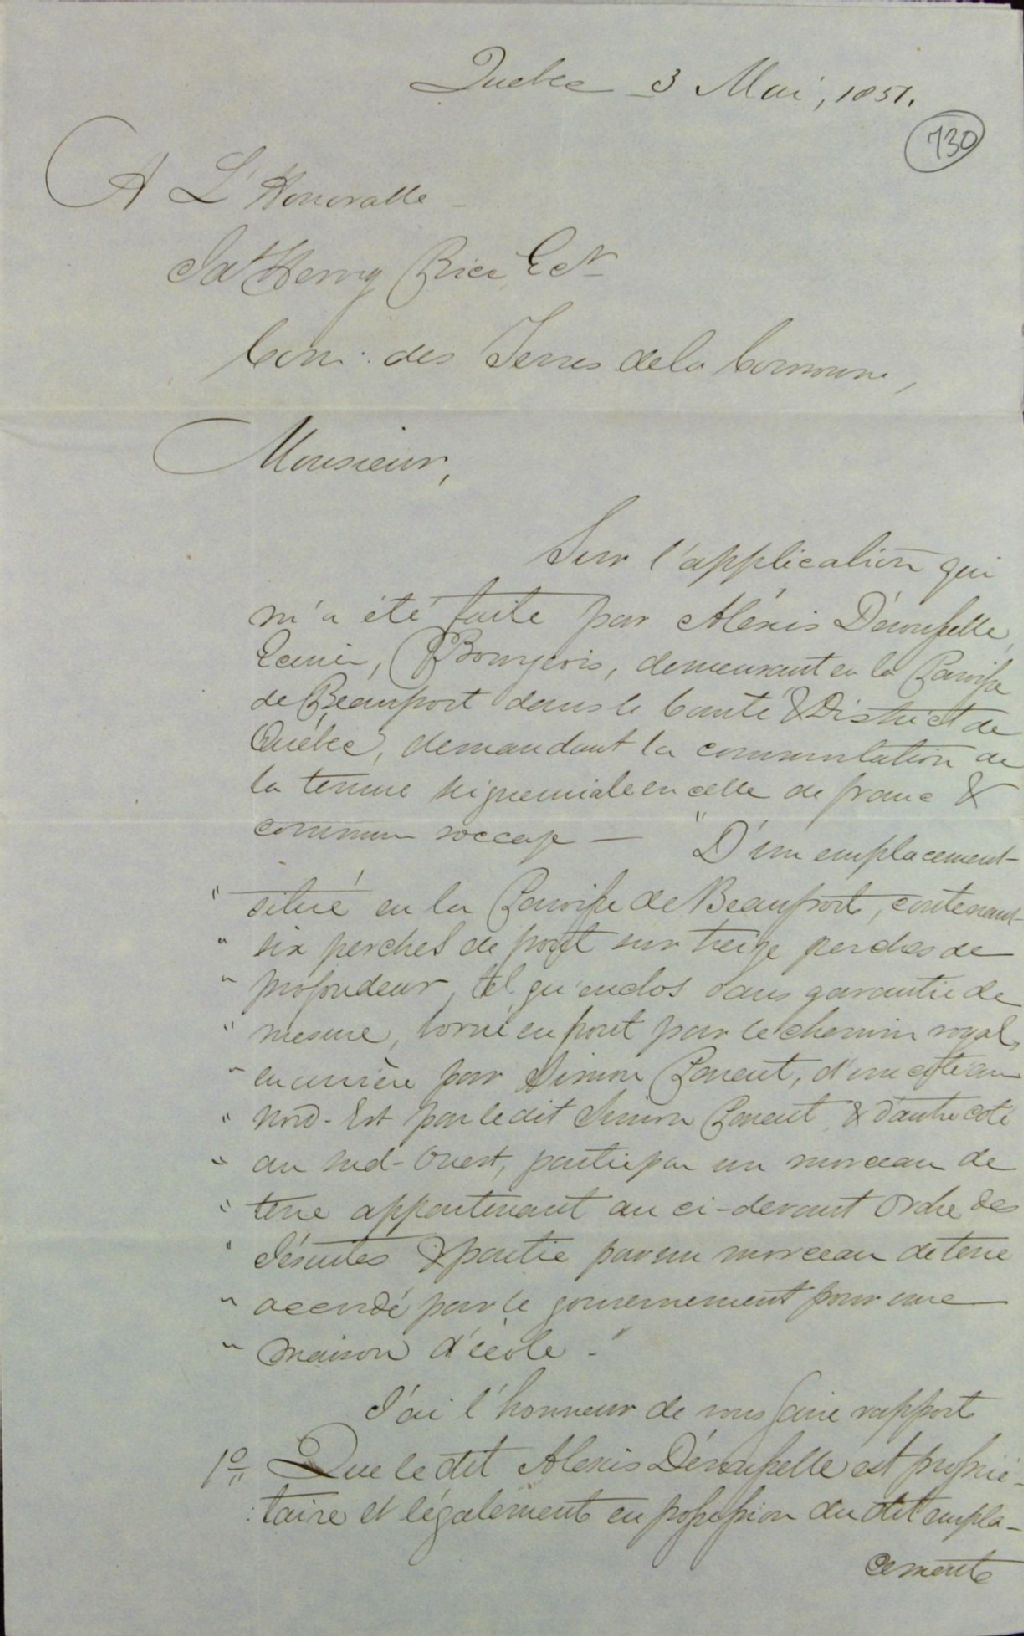 Québec 3 Mai, 1851.
730
A L'Honorable
Jas Henry Price Ecr
Com: des Terres de la Couronne,
Monsieur,
Sur l'application qui
m'a été faite par Alexis Dérousselle,
Ecuier, Bourgeois, demeurant en la Paroisse
de Beauport dans le Comté & District de
Québec, demandant la commutation de
la tenure seigneuriale en celle de franc &
commun soccage — "D'un emplacement
" situé en la Paroisse de Beauport, contenant
" six perches de front sur treize perches de
" profondeur, tel qu'enclos sans garantie de
" mesure, borné en front par le chemin royal,
" en arrière par Simon Parent, d'un côté au
" Nord-Est par le dit Simon Parent, & d'autre côté
" au Sud-Ouest, partie par un morceau de
" terre appartenant au ci-devant Ordre des
" Jésuites & partie par un morceau de terre
" accordé par le gouvernement pour une
" maison d'école."
J'ai l'honneur de vous faire rapport
1º Que le dit Alexis Dérousselle est proprié-
taire et légalement en possession du dit empla-
cement